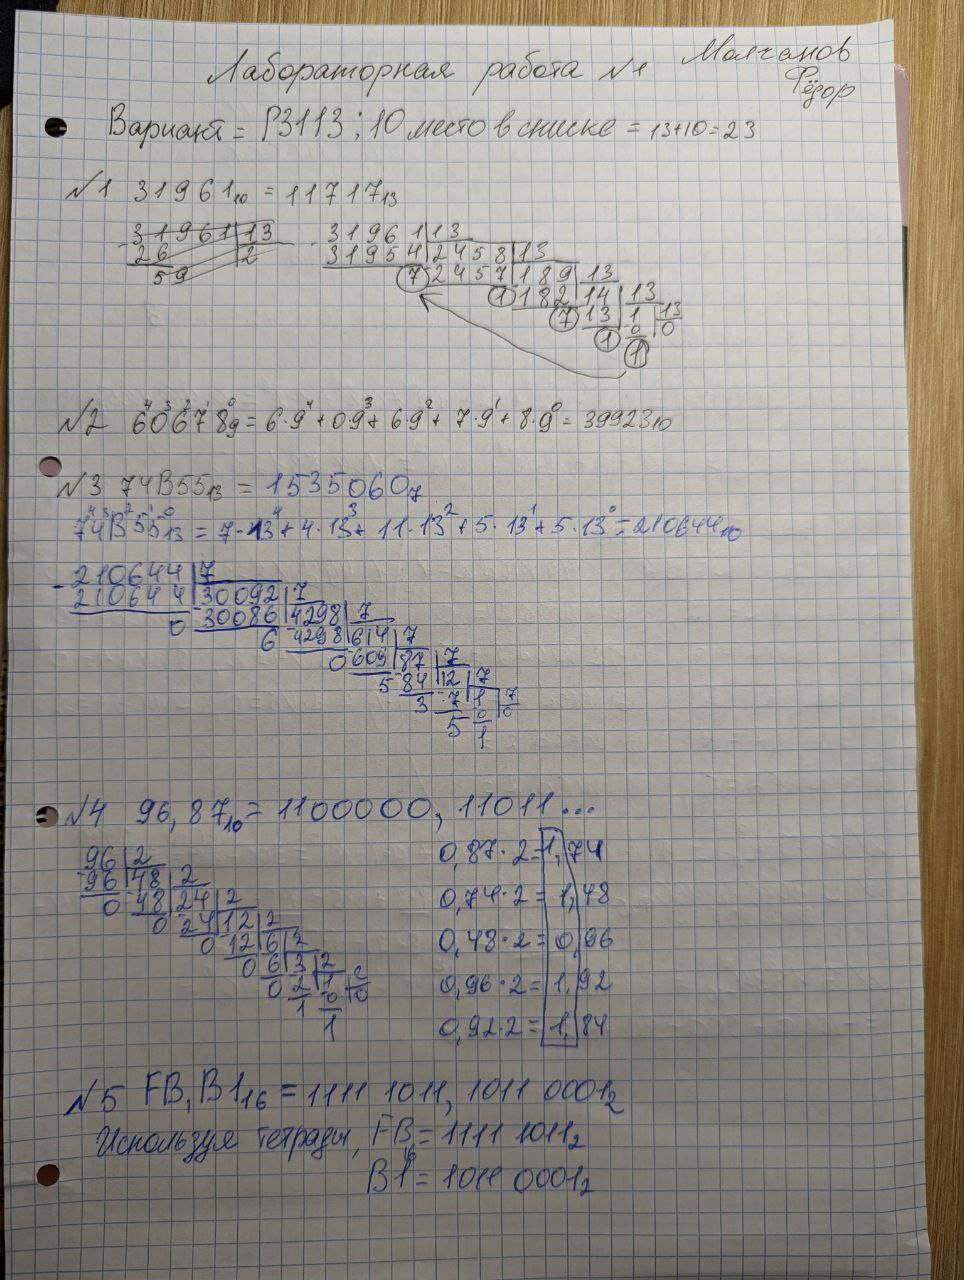 Лабораторная работа №1 Молчанов
Фёдор
Вариант = P3113; 10 место в списке = 13+10=23
№1 31961₁₀ = 11717₁₃
31961 | 13
26 | 2
59
31961 | 13
31954 | 2458 | 13
7 2457 | 189 | 13
1 182 | 14 | 13
7 13 | 1 | 13
1 0 | 0
1
№2 6⁴0³6²7¹8⁰₉ = 6·9⁴ + 0·9³ + 6·9² + 7·9¹ + 8·9⁰ = 39923₁₀
№3 74B55₁₃ = 1535060₇
7⁴4³B²5¹5⁰₁₃ = 7·13⁴ + 4·13³ + 11·13² + 5·13¹ + 5·13⁰ = 210644₁₀
210644 | 7
210644 | 30092 | 7
0 30086 | 4298 | 7
6 4298 | 614 | 7
0 609 | 87 | 7
5 84 | 12 | 7
3 7 | 1 | 7
5 0 | 0
1
№4 96,87₁₀ = 1100000,11011...
96 | 2
96 | 48 | 2
0 48 | 24 | 2
0 24 | 12 | 2
0 12 | 6 | 2
0 6 | 3 | 2
0 2 | 1 | 2
1 0 | 0
1
0,87·2=1,74
0,74·2=1,48
0,48·2=0,96
0,96·2=1,92
0,92·2=1,84
№5 FB,B1₁₆ = 1111 1011, 1011 0001₂
Используя тетради, FB₁₆ = 1111 1011₂
B1 = 1011 0001₂